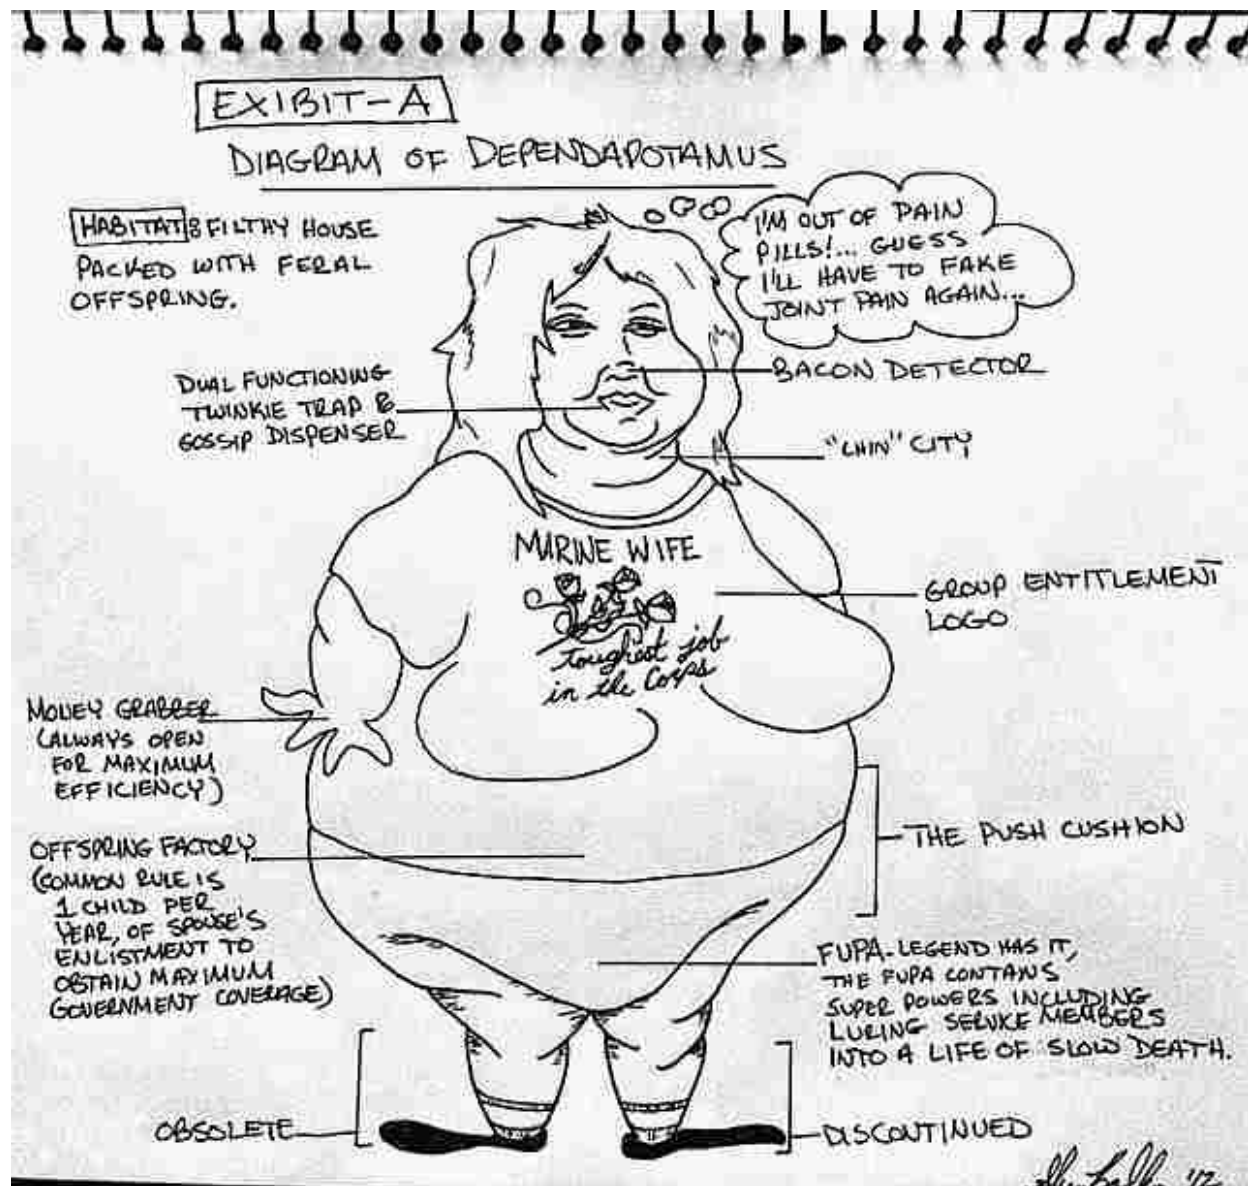 EXIBIT-A
DIAGRAM OF DEPENDAPOTAMUS
HABITAT: FILTHY HOUSE
PACKED WITH FERAL
OFFSPRING.
I'M OUT OF PAIN
PILLS!... GUESS
I'LL HAVE TO FAKE
JOINT PAIN AGAIN...
DUAL FUNCTIONING
TWINKIE TRAP &
GOSSIP DISPENSER
BACON DETECTOR
"CHIN" CITY
MARINE WIFE
toughest job
in the Corps
GROUP ENTITLEMENT
LOGO
MONEY GRABBER
(ALWAYS OPEN
FOR MAXIMUM
EFFICIENCY)
THE PUSH CUSHION
OFFSPRING FACTORY
(COMMON RULE IS
1 CHILD PER
YEAR, OF SPOUSE'S
ENLISTMENT TO
OBTAIN MAXIMUM
GOVERNMENT COVERAGE)
FUPA-LEGEND HAS IT,
THE FUPA CONTAINS
SUPER POWERS INCLUDING
LURING SERVICE MEMBERS
INTO A LIFE OF SLOW DEATH.
OBSOLETE
DISCONTINUED
'12